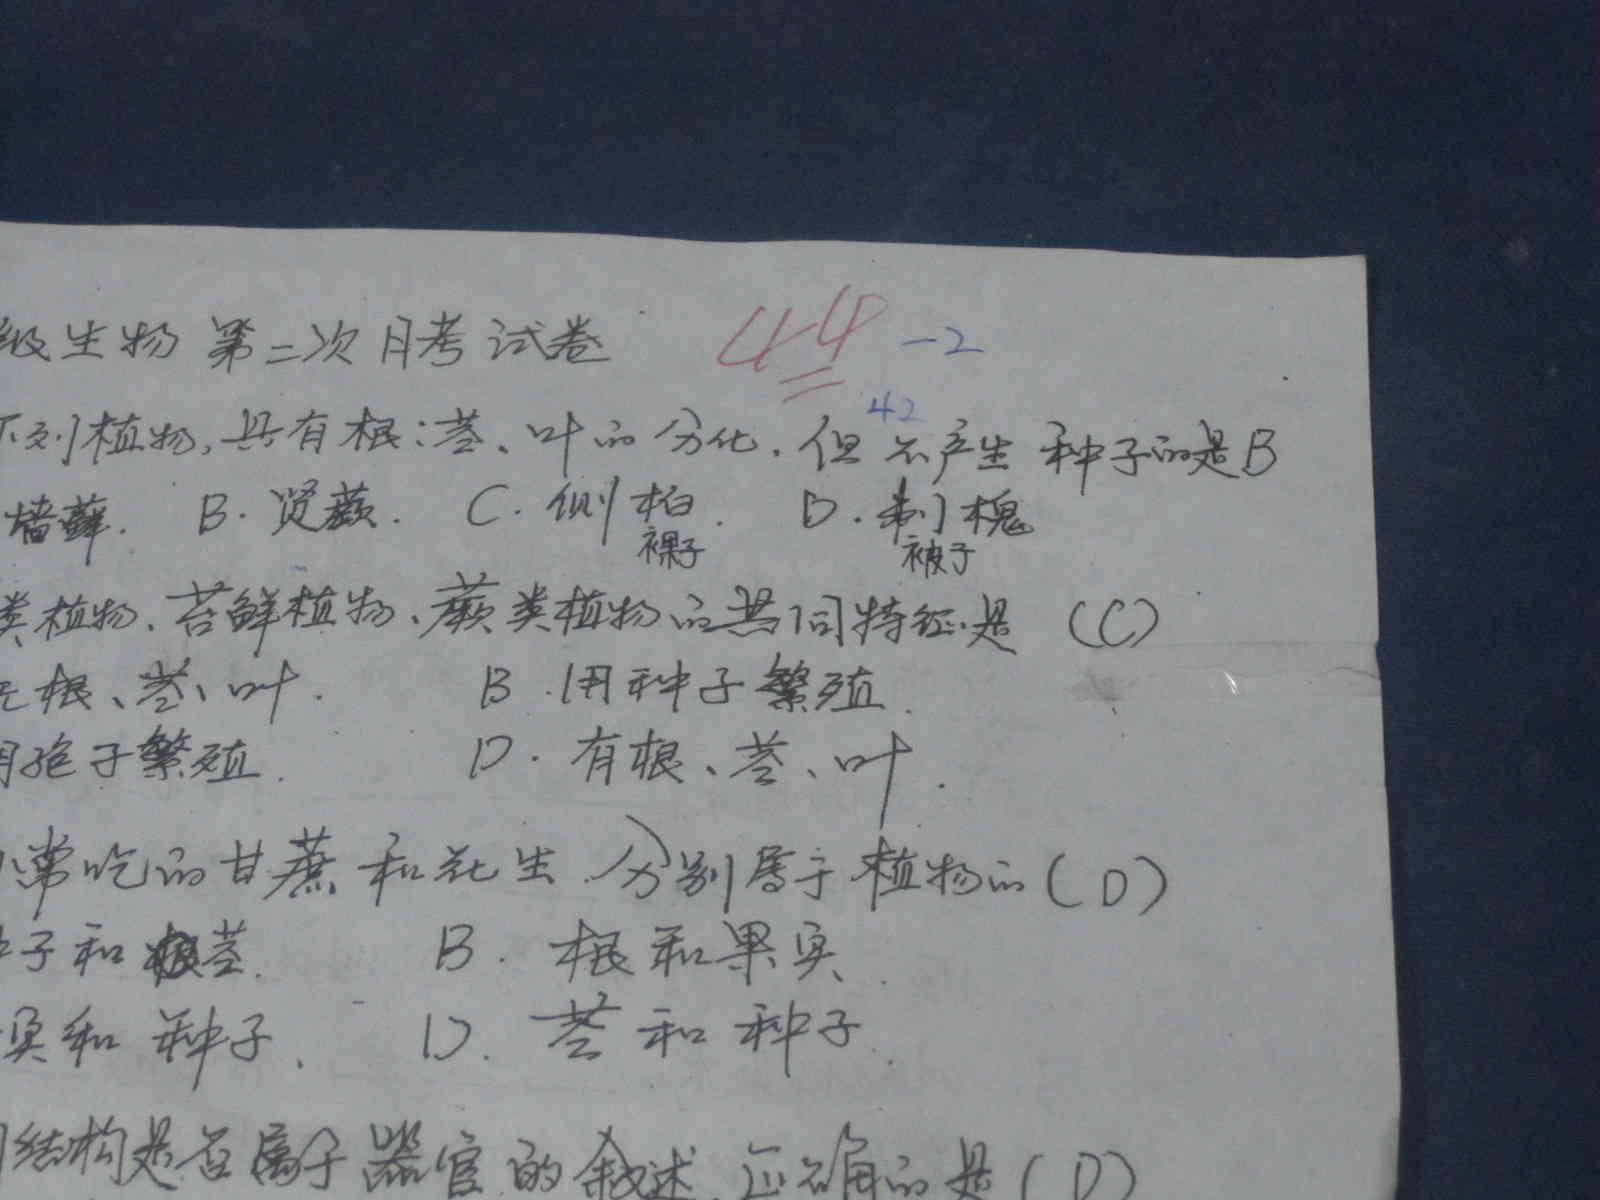 级生物第二次月考试卷 44 -2
42
下列植物,具有根:茎、叶的分化.但不产生种子的是B
墙藓. B.贤蕨. C.侧柏. D.刺槐
裸子 被子
类植物、苔鲜植物、蕨类植物的共同特征是 (C)
无根、茎、叶. B.用种子繁殖.
用孢子繁殖. D.有根、茎、叶.
常吃的甘蔗和花生分别属于植物的(D)
子和茎. B.根和果实.
实和种子. D.茎和种子.
结构是否属于器官的叙述,正确的是(D)